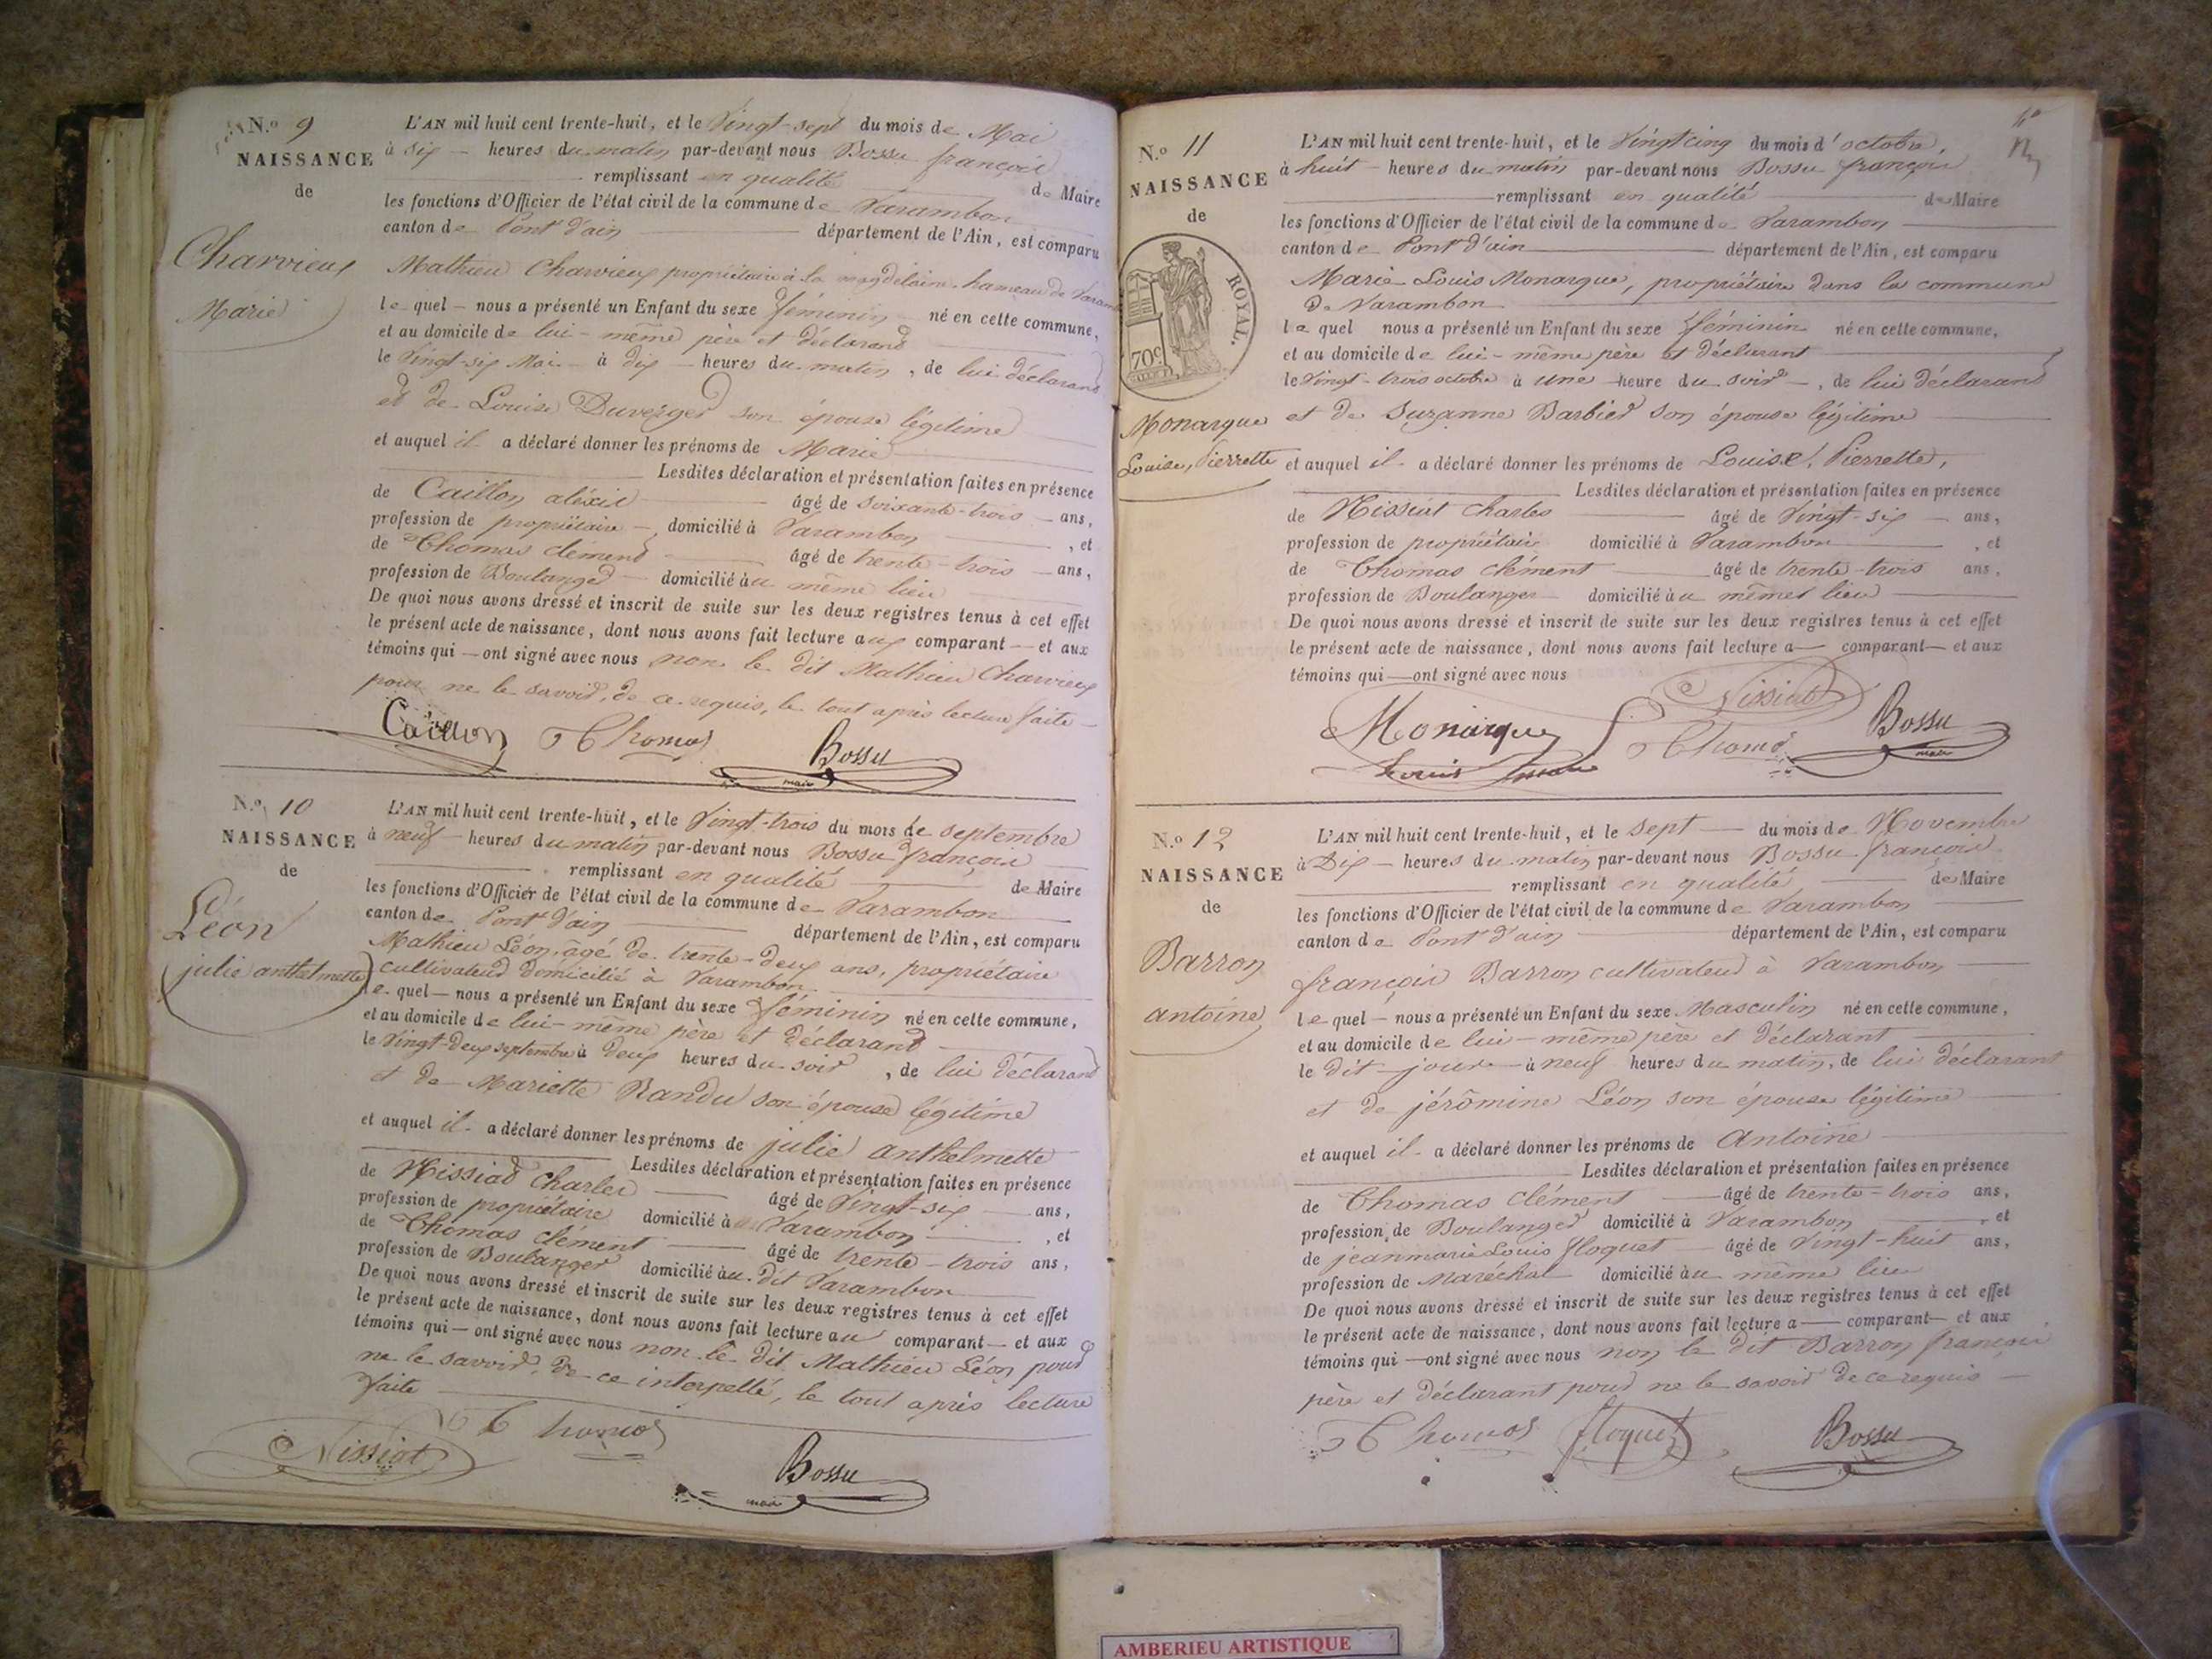 N.o 9
NAISSANCE
de
Charvieux
Marie
L'AN mil huit cent trente-huit, et le Vingt-sept du mois de Mai
à six heures du matin par-devant nous Bossu françois
remplissant en qualité de Maire
les fonctions d'Officier de l'état civil de la commune de Varambon
canton de Pont d'ain département de l'Ain, est comparu
Mathieu Charvieux propriétaire à la magdelaine hameau de Varambon
le quel nous a présenté un Enfant du sexe féminin né en cette commune,
et au domicile de lui-même père et déclarant
le Vingt-six Mai à dix heures du matin, de lui déclarant
et de Louise Duverger son épouse légitime
et auquel il a déclaré donner les prénoms de Marie
Lesdites déclaration et présentation faites en présence
de Caillon aléxis âgé de soixante-trois ans,
profession de propriétaire, domicilié à Varambon, et
de Thomas clément âgé de trente-trois ans,
profession de Boulanger domicilié au même lieu
De quoi nous avons dressé et inscrit de suite sur les deux registres tenus à cet effet
le présent acte de naissance, dont nous avons fait lecture aux comparant et aux
témoins qui ont signé avec nous non le dit Mathieu Charvieux
pour ne le savoir, de ce requis, le tout après lecture faite
Caillon Thomas Bossu
maire
N.o 10
NAISSANCE
de
Léon
julie anthelmette
L'AN mil huit cent trente-huit, et le Vingt-trois du mois de septembre
à neuf heures du matin par-devant nous Bossu françois
remplissant en qualité de Maire
les fonctions d'Officier de l'état civil de la commune de Varambon
canton de Pont d'ain département de l'Ain, est comparu
Mathieu Léon, âgé de trente-deux ans, propriétaire
cultivateur domicilié à Varambon
le quel nous a présenté un Enfant du sexe féminin né en cette commune,
et au domicile de lui-même père et déclarant
le Vingt-deux septembre à deux heures du soir, de lui déclarant
et de Mariette Randu son épouse légitime
et auquel il a déclaré donner les prénoms de julie anthelmette
Lesdites déclaration et présentation faites en présence
de Nissiat Charles âgé de Vingt-six ans,
profession de propriétaire domicilié à Varambon, et
de Thomas clément âgé de trente-trois ans,
profession de Boulanger domicilié au dit Varambon
De quoi nous avons dressé et inscrit de suite sur les deux registres tenus à cet effet
le présent acte de naissance, dont nous avons fait lecture au comparant et aux
témoins qui ont signé avec nous non le dit Mathieu Léon pour
ne le savoir, de ce interpellé, le tout après lecture
faite
Nissiat Thomas Bossu
maire
N.o 11
NAISSANCE
de
ROYAL.
70c
Monarque
Louise, Pierrette
L'AN mil huit cent trente-huit, et le Vingt cinq du mois d'octobre,
à huit heures du matin par-devant nous Bossu françois
remplissant en qualité de Maire
les fonctions d'Officier de l'état civil de la commune de Varambon
canton de Pont d'ain département de l'Ain, est comparu
Marie Louis Monarque, propriétaire dans la commune
de Varambon
le quel nous a présenté un Enfant du sexe féminin né en cette commune,
et au domicile de lui-même père et déclarant
le Vingt-trois octobre à une heure du soir, de lui déclarant
et de Suzanne Barbier son épouse légitime
et auquel il a déclaré donner les prénoms de Louise, Pierrette,
Lesdites déclaration et présentation faites en présence
de Nissiat Charles âgé de Vingt-six ans,
profession de propriétaire domicilié à Varambon, et
de Thomas clément âgé de trente-trois ans,
profession de Boulanger domicilié au mêmes lieu
De quoi nous avons dressé et inscrit de suite sur les deux registres tenus à cet effet
le présent acte de naissance, dont nous avons fait lecture a comparant et aux
témoins qui ont signé avec nous
Nissiat
Monarque Thomas Bossu
Louis maire
N.o 12
NAISSANCE
de
Barron
antoine
L'AN mil huit cent trente-huit, et le sept du mois de Novembre
à Dix heures du matin par-devant nous Bossu françois
remplissant en qualité de Maire
les fonctions d'Officier de l'état civil de la commune de Varambon
canton de Pont d'ain département de l'Ain, est comparu
françois Barron cultivateur à Varambon
le quel nous a présenté un Enfant du sexe Masculin né en cette commune,
et au domicile de lui-même père et déclarant
le dit jour à neuf heures du matin, de lui déclarant
et de jérômine Léon son épouse légitime
et auquel il a déclaré donner les prénoms de Antoine
Lesdites déclaration et présentation faites en présence
de Thomas clément âgé de trente-trois ans,
profession de Boulanger domicilié à Varambon, et
de jeanmarie Louis floquet âgé de Vingt-huit ans,
profession de Maréchal domicilié au même lieu
De quoi nous avons dressé et inscrit de suite sur les deux registres tenus à cet effet
le présent acte de naissance, dont nous avons fait lecture a comparant et aux
témoins qui ont signé avec nous non le dit Barron françois
père et déclarant pour ne le savoir de ce requis
Thomas floquet Bossu
AMBERIEU ARTISTIQUE